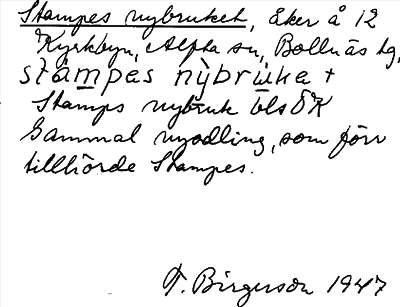 Stampes nybruket, åker å 12
Kyrkbyn, Alfta sn, Bollnäs tg,
stampes nybruka +
Stamps nybruk ÖlsÖK
Gammal nyodling, som förr
tillhörde Stampes.
F. Birgerson 1947